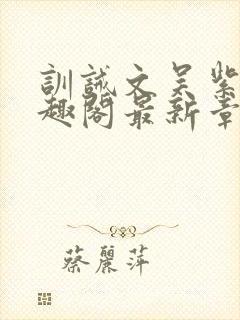 訓誡文吳紫
趣閣最新章
蔡麗萍